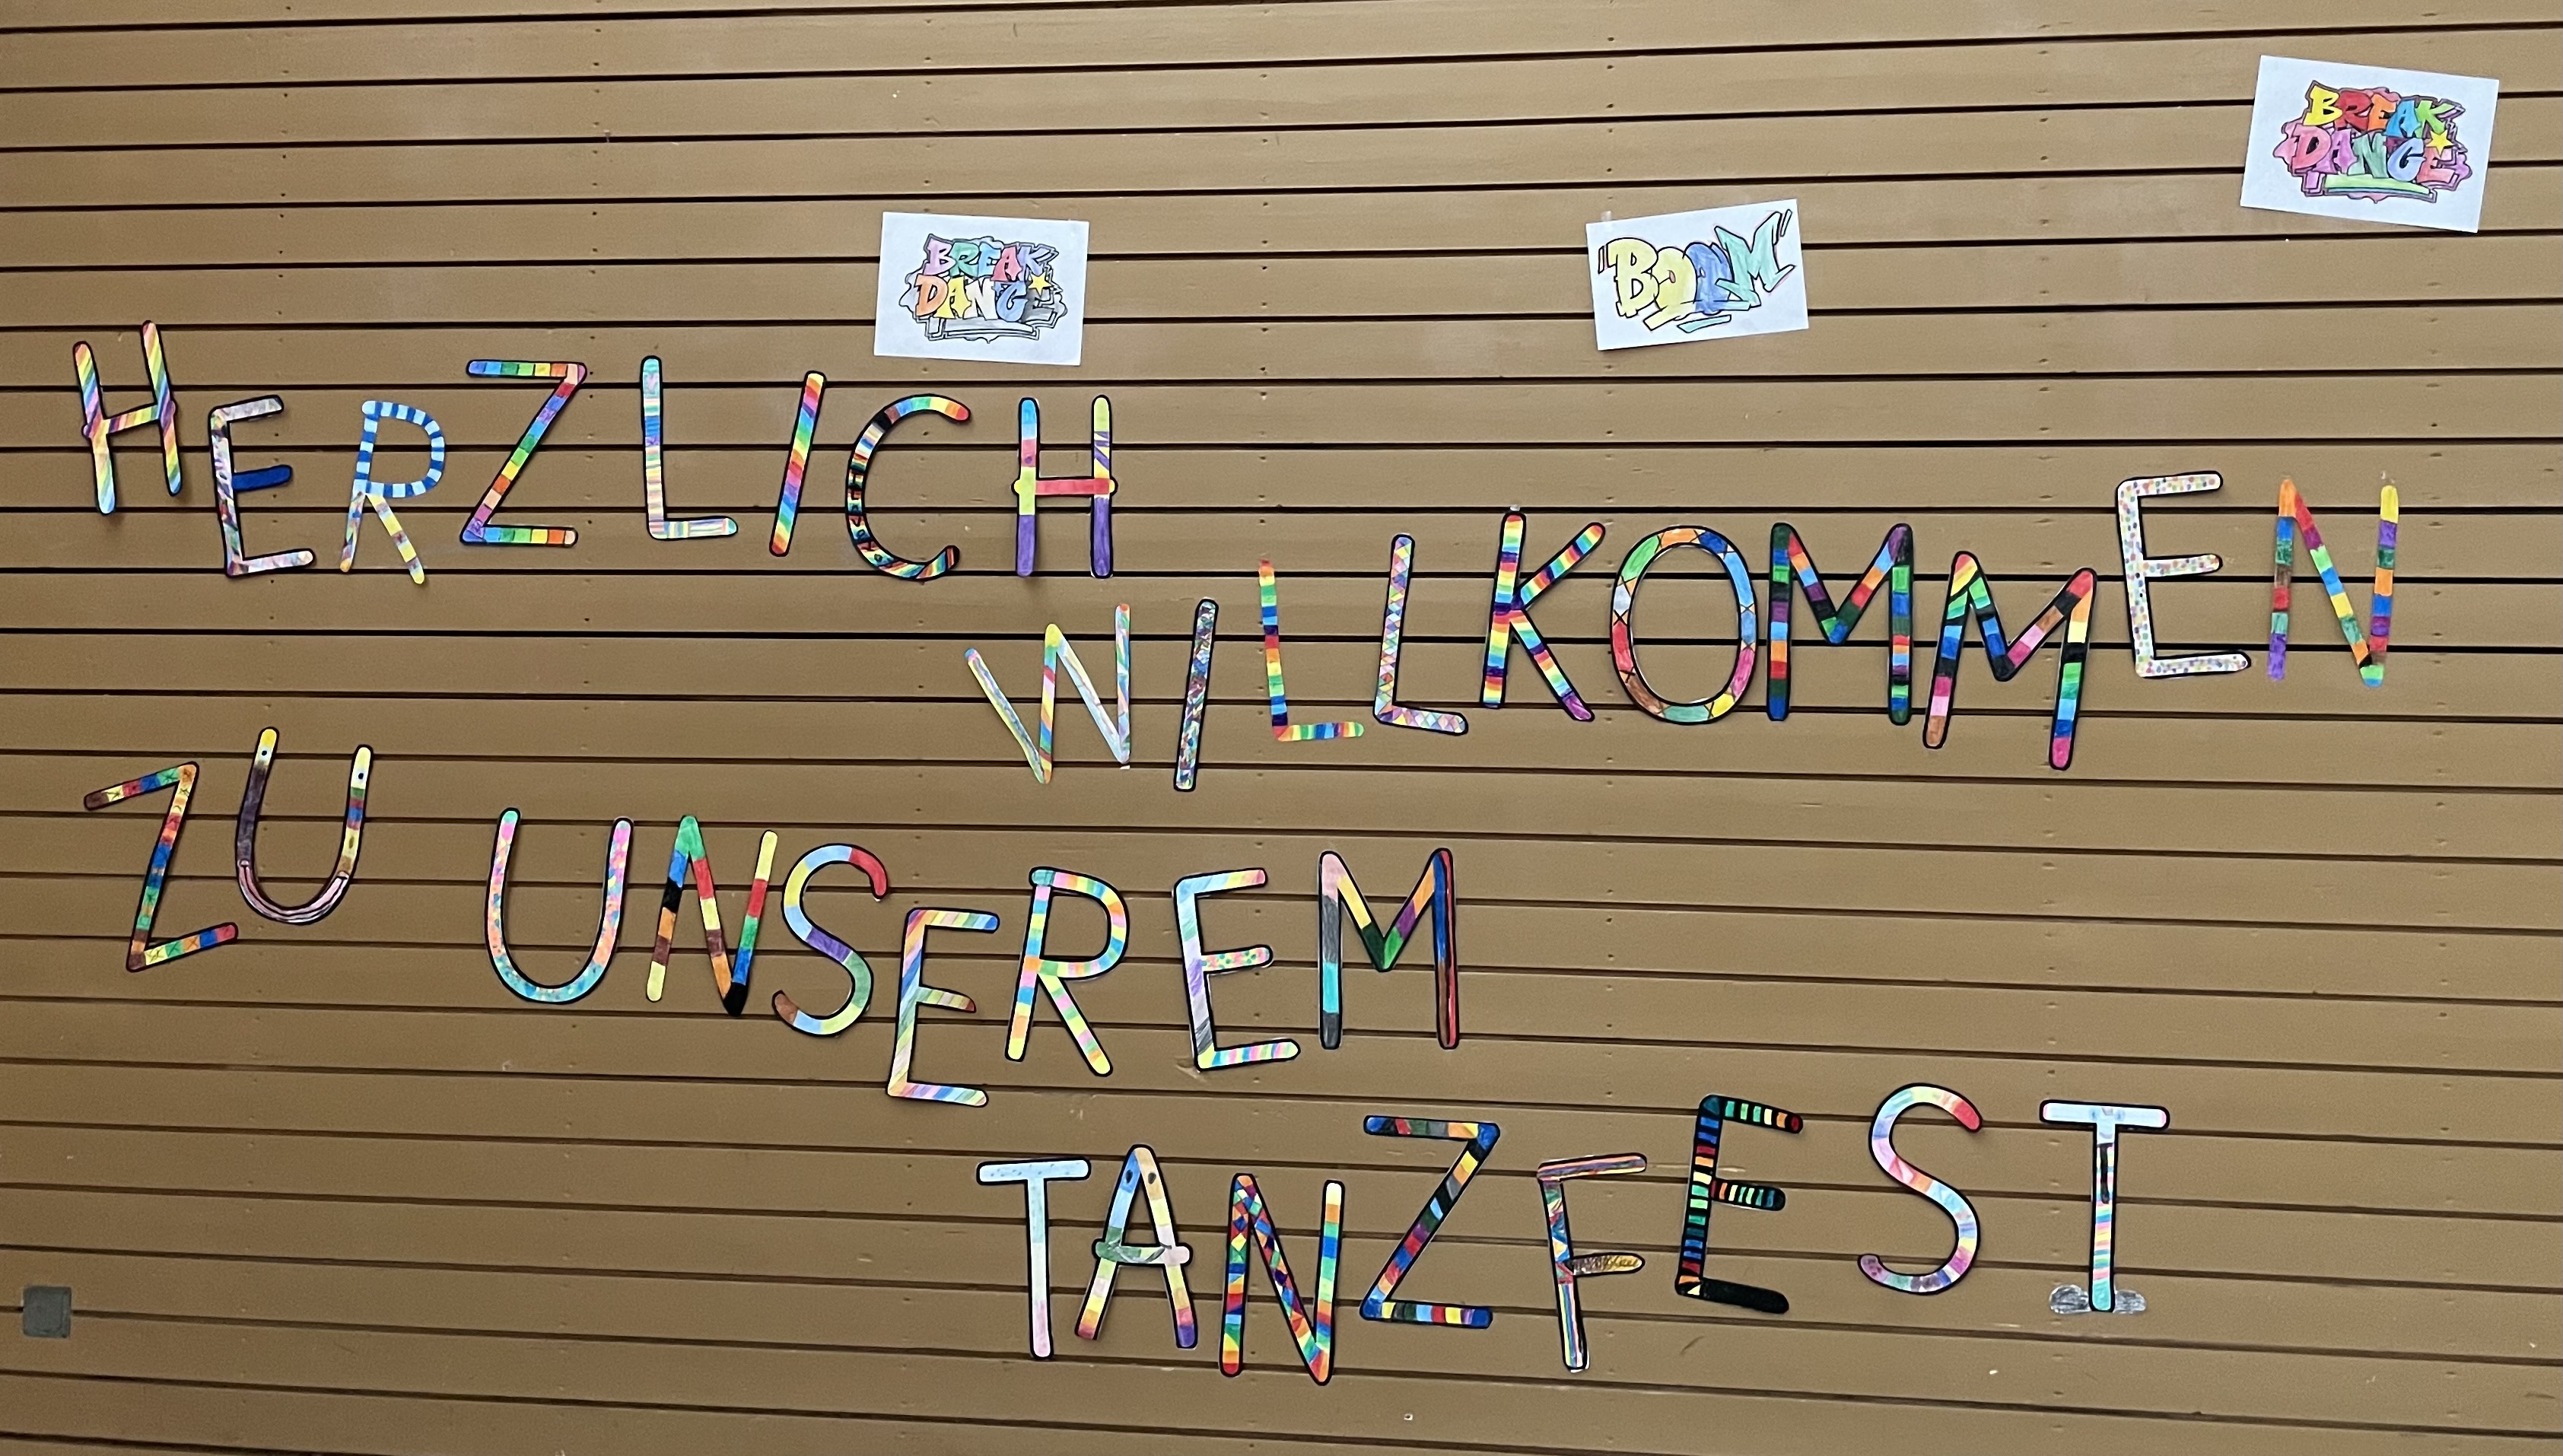 BREAK
DANCE
BOOM
BREAK
DANCE
HERZLICH
WILLKOMMEN
ZU UNSEREM
TANZFEST